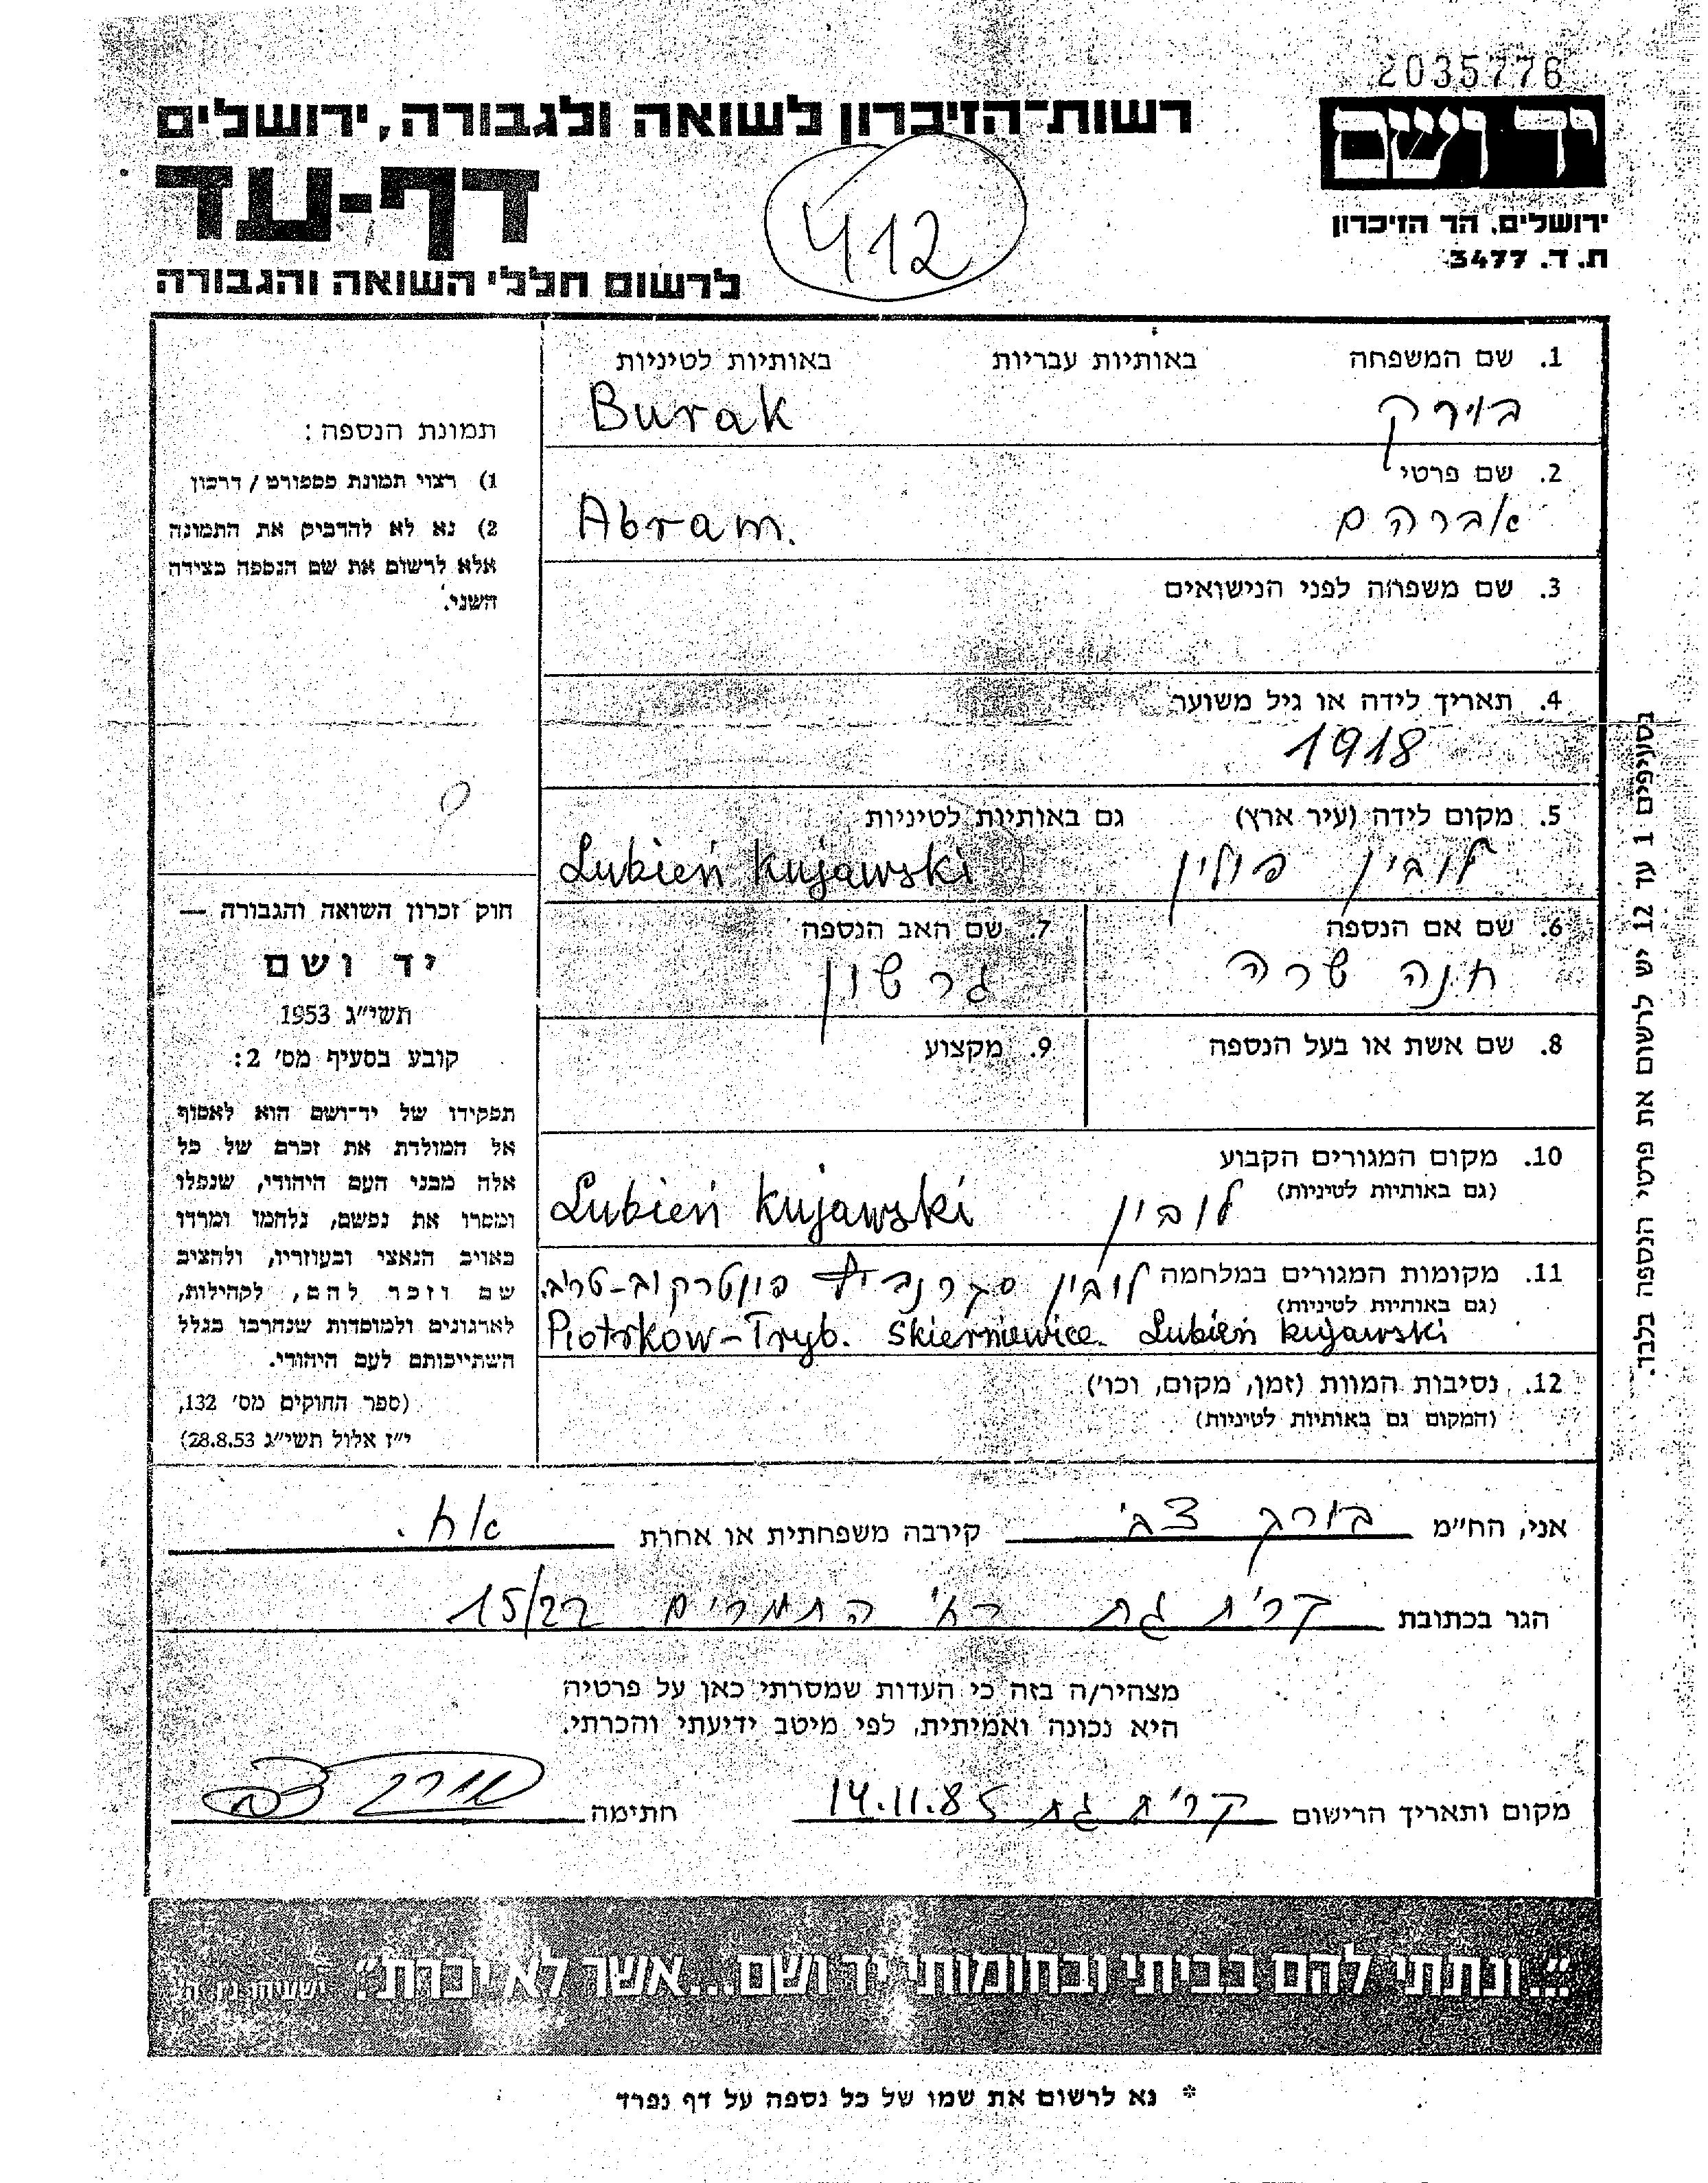 2035776
רשות־הזיכרון לשואה ולגבורה, ירושלים
יד ושם
דף-עד
412
ירושלים, הר הזיכרון
ת. ד. 3477
לרשום חללי השואה והגבורה
1. שם המשפחה באותיות עבריות באותיות לטיניות
בוירק Burak
2. שם פרטי
אברהם Abram.
3. שם משפחה לפני הנישואים
4. תאריך לידה או גיל משוער
1918
5. מקום לידה (עיר ארץ) גם באותיות לטיניות
לובין פולין Lubień Kujawski
6. שם אם הנספה
חנה שרה
7. שם האב הנספה
גרשון
8. שם אשת או בעל הנספה
9. מקצוע
10. מקום המגורים הקבוע
(גם באותיות לטיניות)
לובין Lubień Kujawski
11. מקומות המגורים במלחמה
(גם באותיות לטיניות)
לובין פיוטרקוב-טריב.
Piotrkow-Tryb. Skierniewice. Lubień Kujawski
12. נסיבות המוות (זמן, מקום, וכו')
(המקום גם באותיות לטיניות)
תמונת הנספה:
1) רצוי תמונת פספורט / דרכון
2) נא לא להדביק את התמונה
אלא לרשום את שם הנספה בצידה
השני.
חוק זכרון השואה והגבורה —
יד ושם
תשי"ג 1953
קובע בסעיף מס' 2:
תפקידו של יד־ושם הוא לאסוף
אל המולדת את זכרם של כל
אלה מבני העם היהודי, שנפלו
ומסרו את נפשם, נלחמו ומרדו
באויב הנאצי ובעוזריו, ולהציב
שם וזכר להם, לקהילות,
לארגונים ולמוסדות שנחרבו בגלל
השתייכותם לעם היהודי.
(ספר החוקים מס' 132,
י"ז אלול תשי"ג 28.8.53)
בסעיפים 1 עד 12 יש לרשום את פרטי הנספה בלבד.
אני, הח"מ בורק צבי קירבה משפחתית או אחרת אח.
הגר בכתובת קרית גת רח' התמרים 15/22
מצהיר/ה בזה כי העדות שמסרתי כאן על פרטיה
היא נכונה ואמיתית, לפי מיטב ידיעתי והכרתי.
מקום ותאריך הרישום קרית גת 14.11.85 חתימה
"...ונתתי להם בביתי ובחומותי יד ושם...אשר לא יכרת". ישעיהו נו ה'
* נא לרשום את שמו של כל נספה על דף נפרד